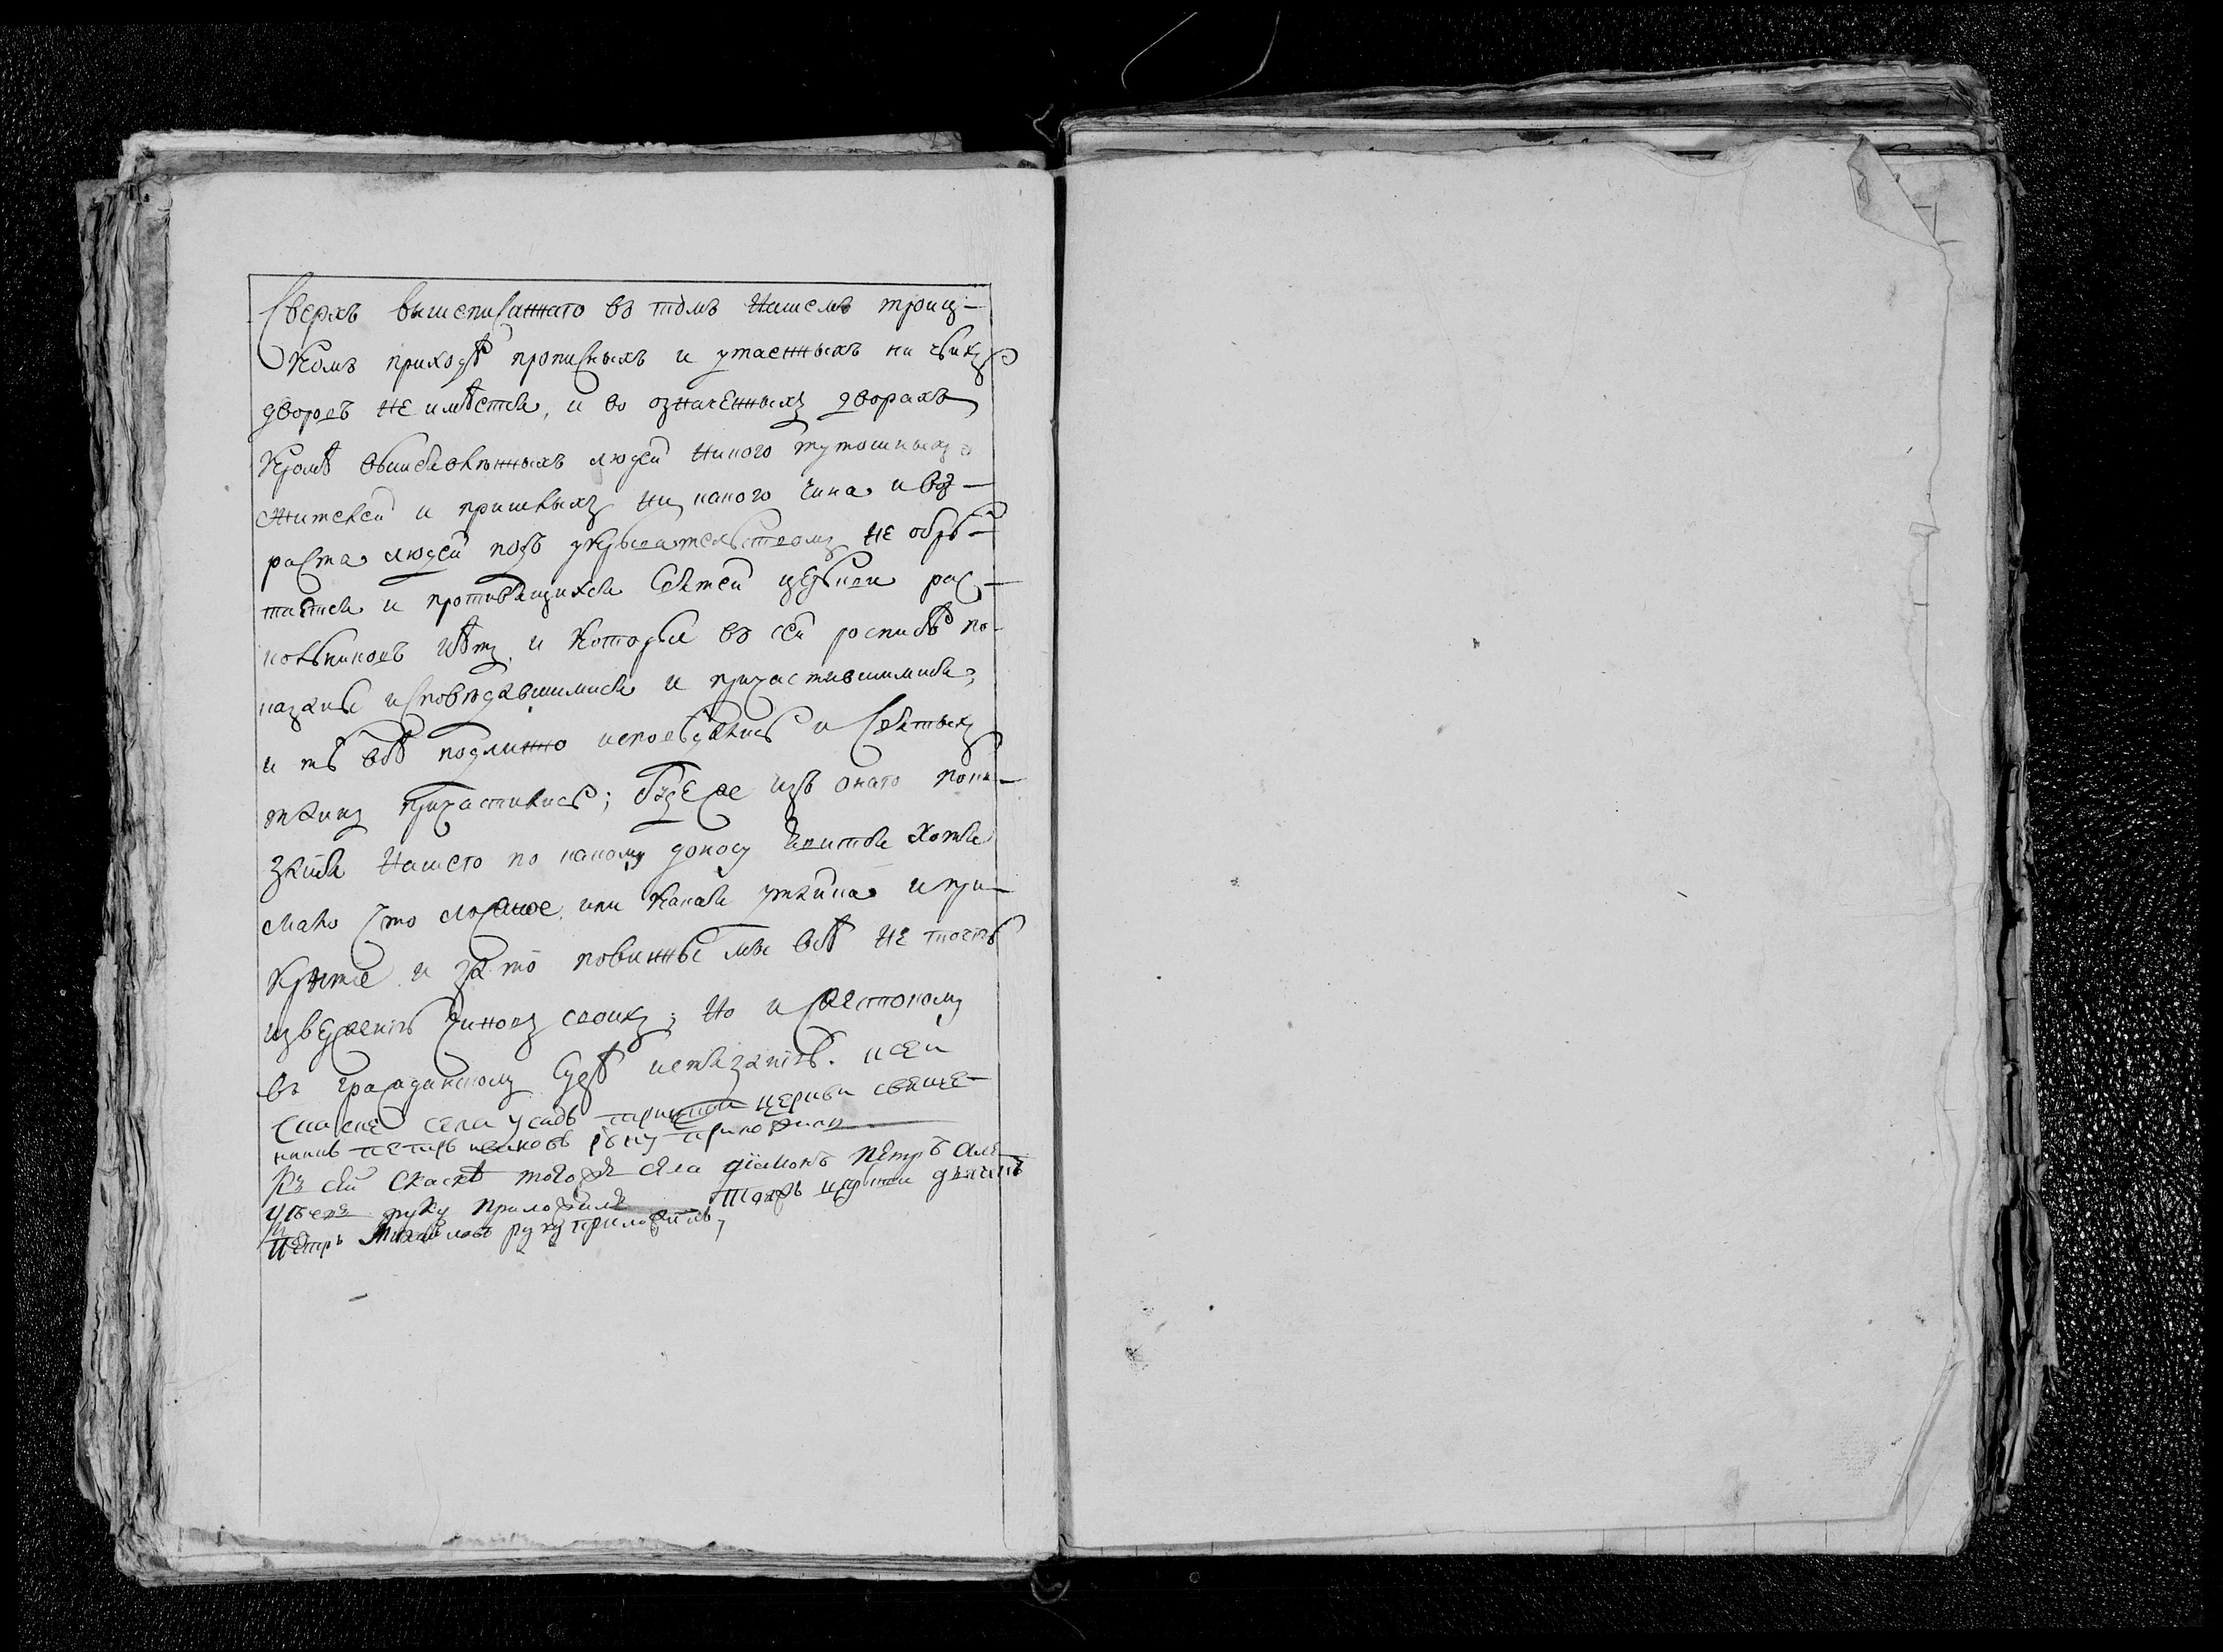 Сверхъ вышеписаннаго въ томъ нашемъ троиц-
комъ приходѣ прописныхъ и утаенныхъ ни чьихъ
дворовъ не имѣется, и во означенныхъ дворахъ
кромѣ вышеявленныхъ людей никого тутошныхъ
жителей и пришлыхъ ни какого чина и воз-
раста людей подъ укрывательствомъ не обрѣ-
тается и противящихся святей церькви рас-
кольниковъ нѣтъ, и которые въ сей росписѣ по-
казаны исповѣдавшимися и причастившимися,
и тѣ всѣ подлинно исповѣдались и святыхъ
таинъ причастились; буде же изъ онаго пока-
зания нашего по какому доносу явится хотя
мало что ложное, или какая утайка и при-
крытие, и за то повинны мы всѣ не точию
извержениь чиновъ своихъ; но и жестокому
въ гражданскомъ судѣ истязаниь. к сей
скаске села усадъ троицкои церкви свяще-
никъ петръ ивановъ руку приложилъ
Къ сей скаскѣ тогожъ села диаконъ петръ але
руку приложилъ тояжъ церкви дьячекъ
петръ михаиловъ руку приложилъ,